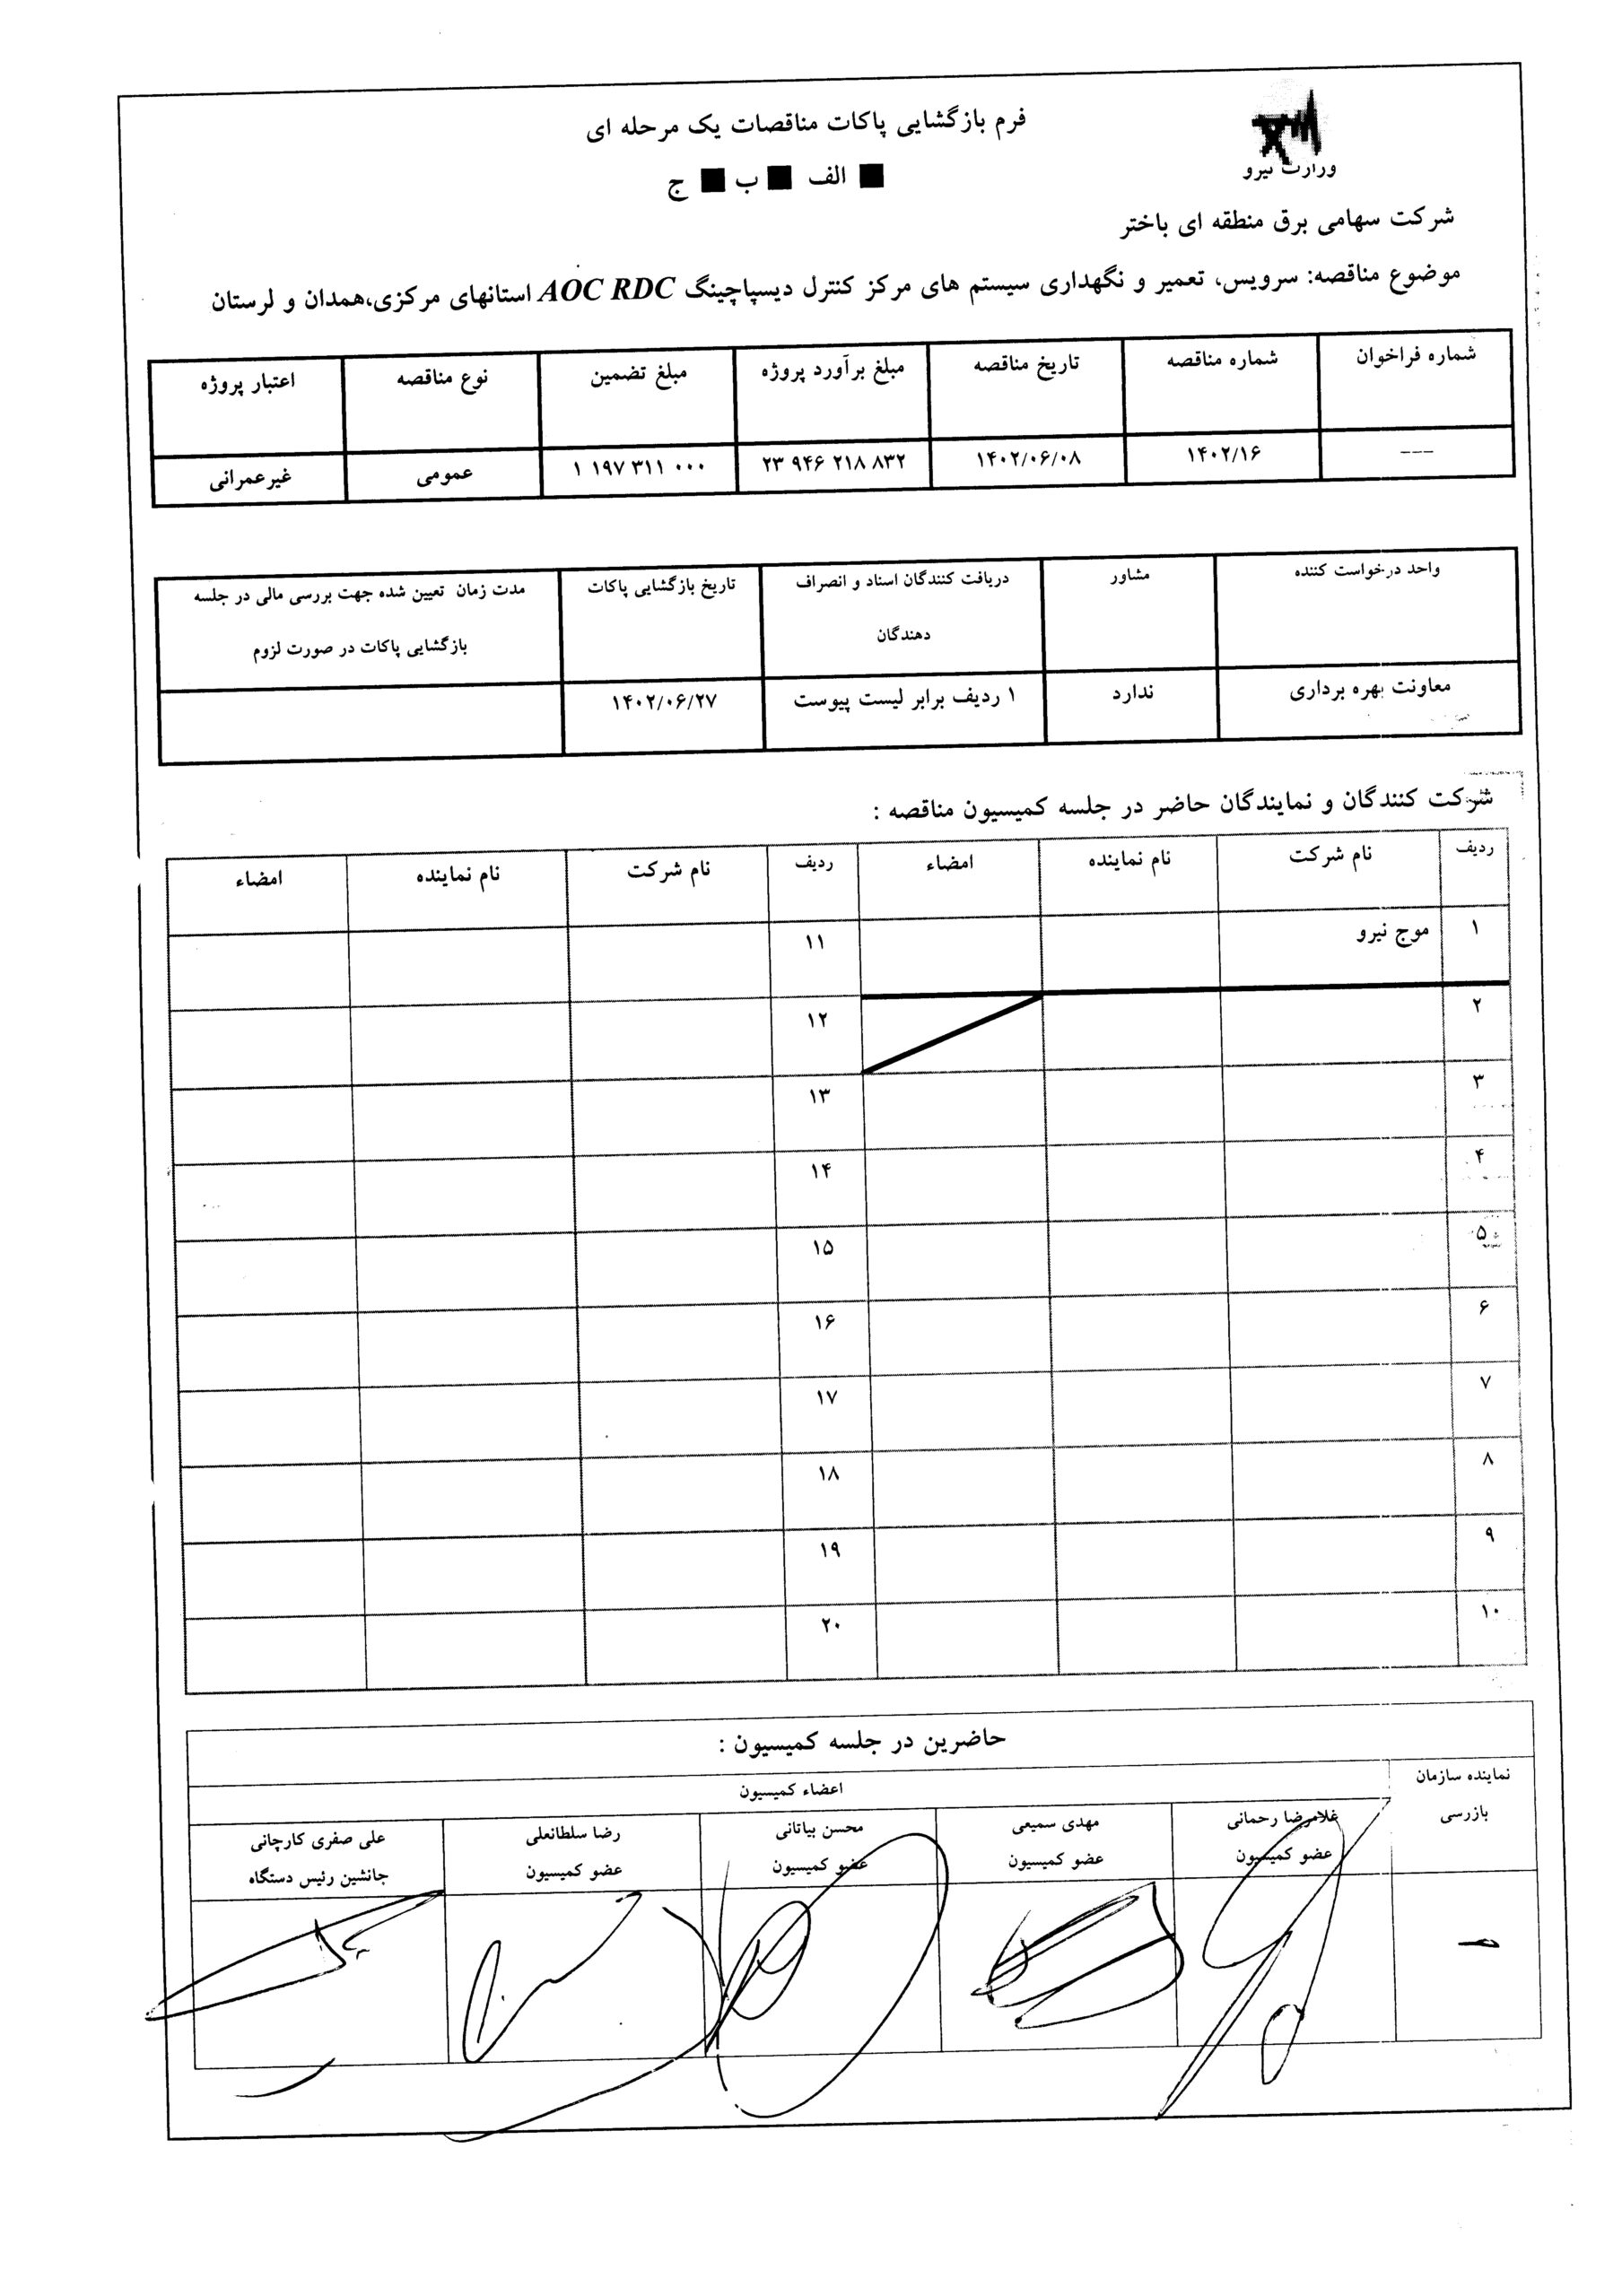 وزارت نیرو
فرم بازگشایی پاکات مناقصات یک مرحله ای
■ الف ■ ب ■ ج
شرکت سهامی برق منطقه ای باختر
موضوع مناقصه: سرویس، تعمیر و نگهداری سیستم های مرکز کنترل دیسپاچینگ AOC RDC استانهای مرکزی،همدان و لرستان
شماره فراخوان شماره مناقصه تاریخ مناقصه مبلغ برآورد پروژه مبلغ تضمین نوع مناقصه اعتبار پروژه
--- ۱۴۰۲/۱۶ ۱۴۰۲/۰۶/۰۸ ۲۳ ۹۴۶ ۲۱۸ ۸۳۲ ۱ ۱۹۷ ۳۱۱ ۰۰۰ عمومی غیرعمرانی
واحد درخواست کننده مشاور دریافت کنندگان اسناد و انصراف تاریخ بازگشایی پاکات مدت زمان تعیین شده جهت بررسی مالی در جلسه
دهندگان بازگشایی پاکات در صورت لزوم
معاونت بهره برداری ندارد ۱ ردیف برابر لیست پیوست ۱۴۰۲/۰۶/۲۷
شرکت کنندگان و نمایندگان حاضر در جلسه کمیسیون مناقصه :
ردیف نام شرکت نام نماینده امضاء ردیف نام شرکت نام نماینده امضاء
۱ موج نیرو ۱۱
۲ ۱۲
۳ ۱۳
۴ ۱۴
۵ ۱۵
۶ ۱۶
۷ ۱۷
۸ ۱۸
۹ ۱۹
۱۰ ۲۰
حاضرین در جلسه کمیسیون :
نماینده سازمان اعضاء کمیسیون
بازرسی غلامرضا رحمانی مهدی سمیعی محسن بیاتانی رضا سلطانعلی علی صفری کارچانی
عضو کمیسیون عضو کمیسیون عضو کمیسیون عضو کمیسیون جانشین رئیس دستگاه